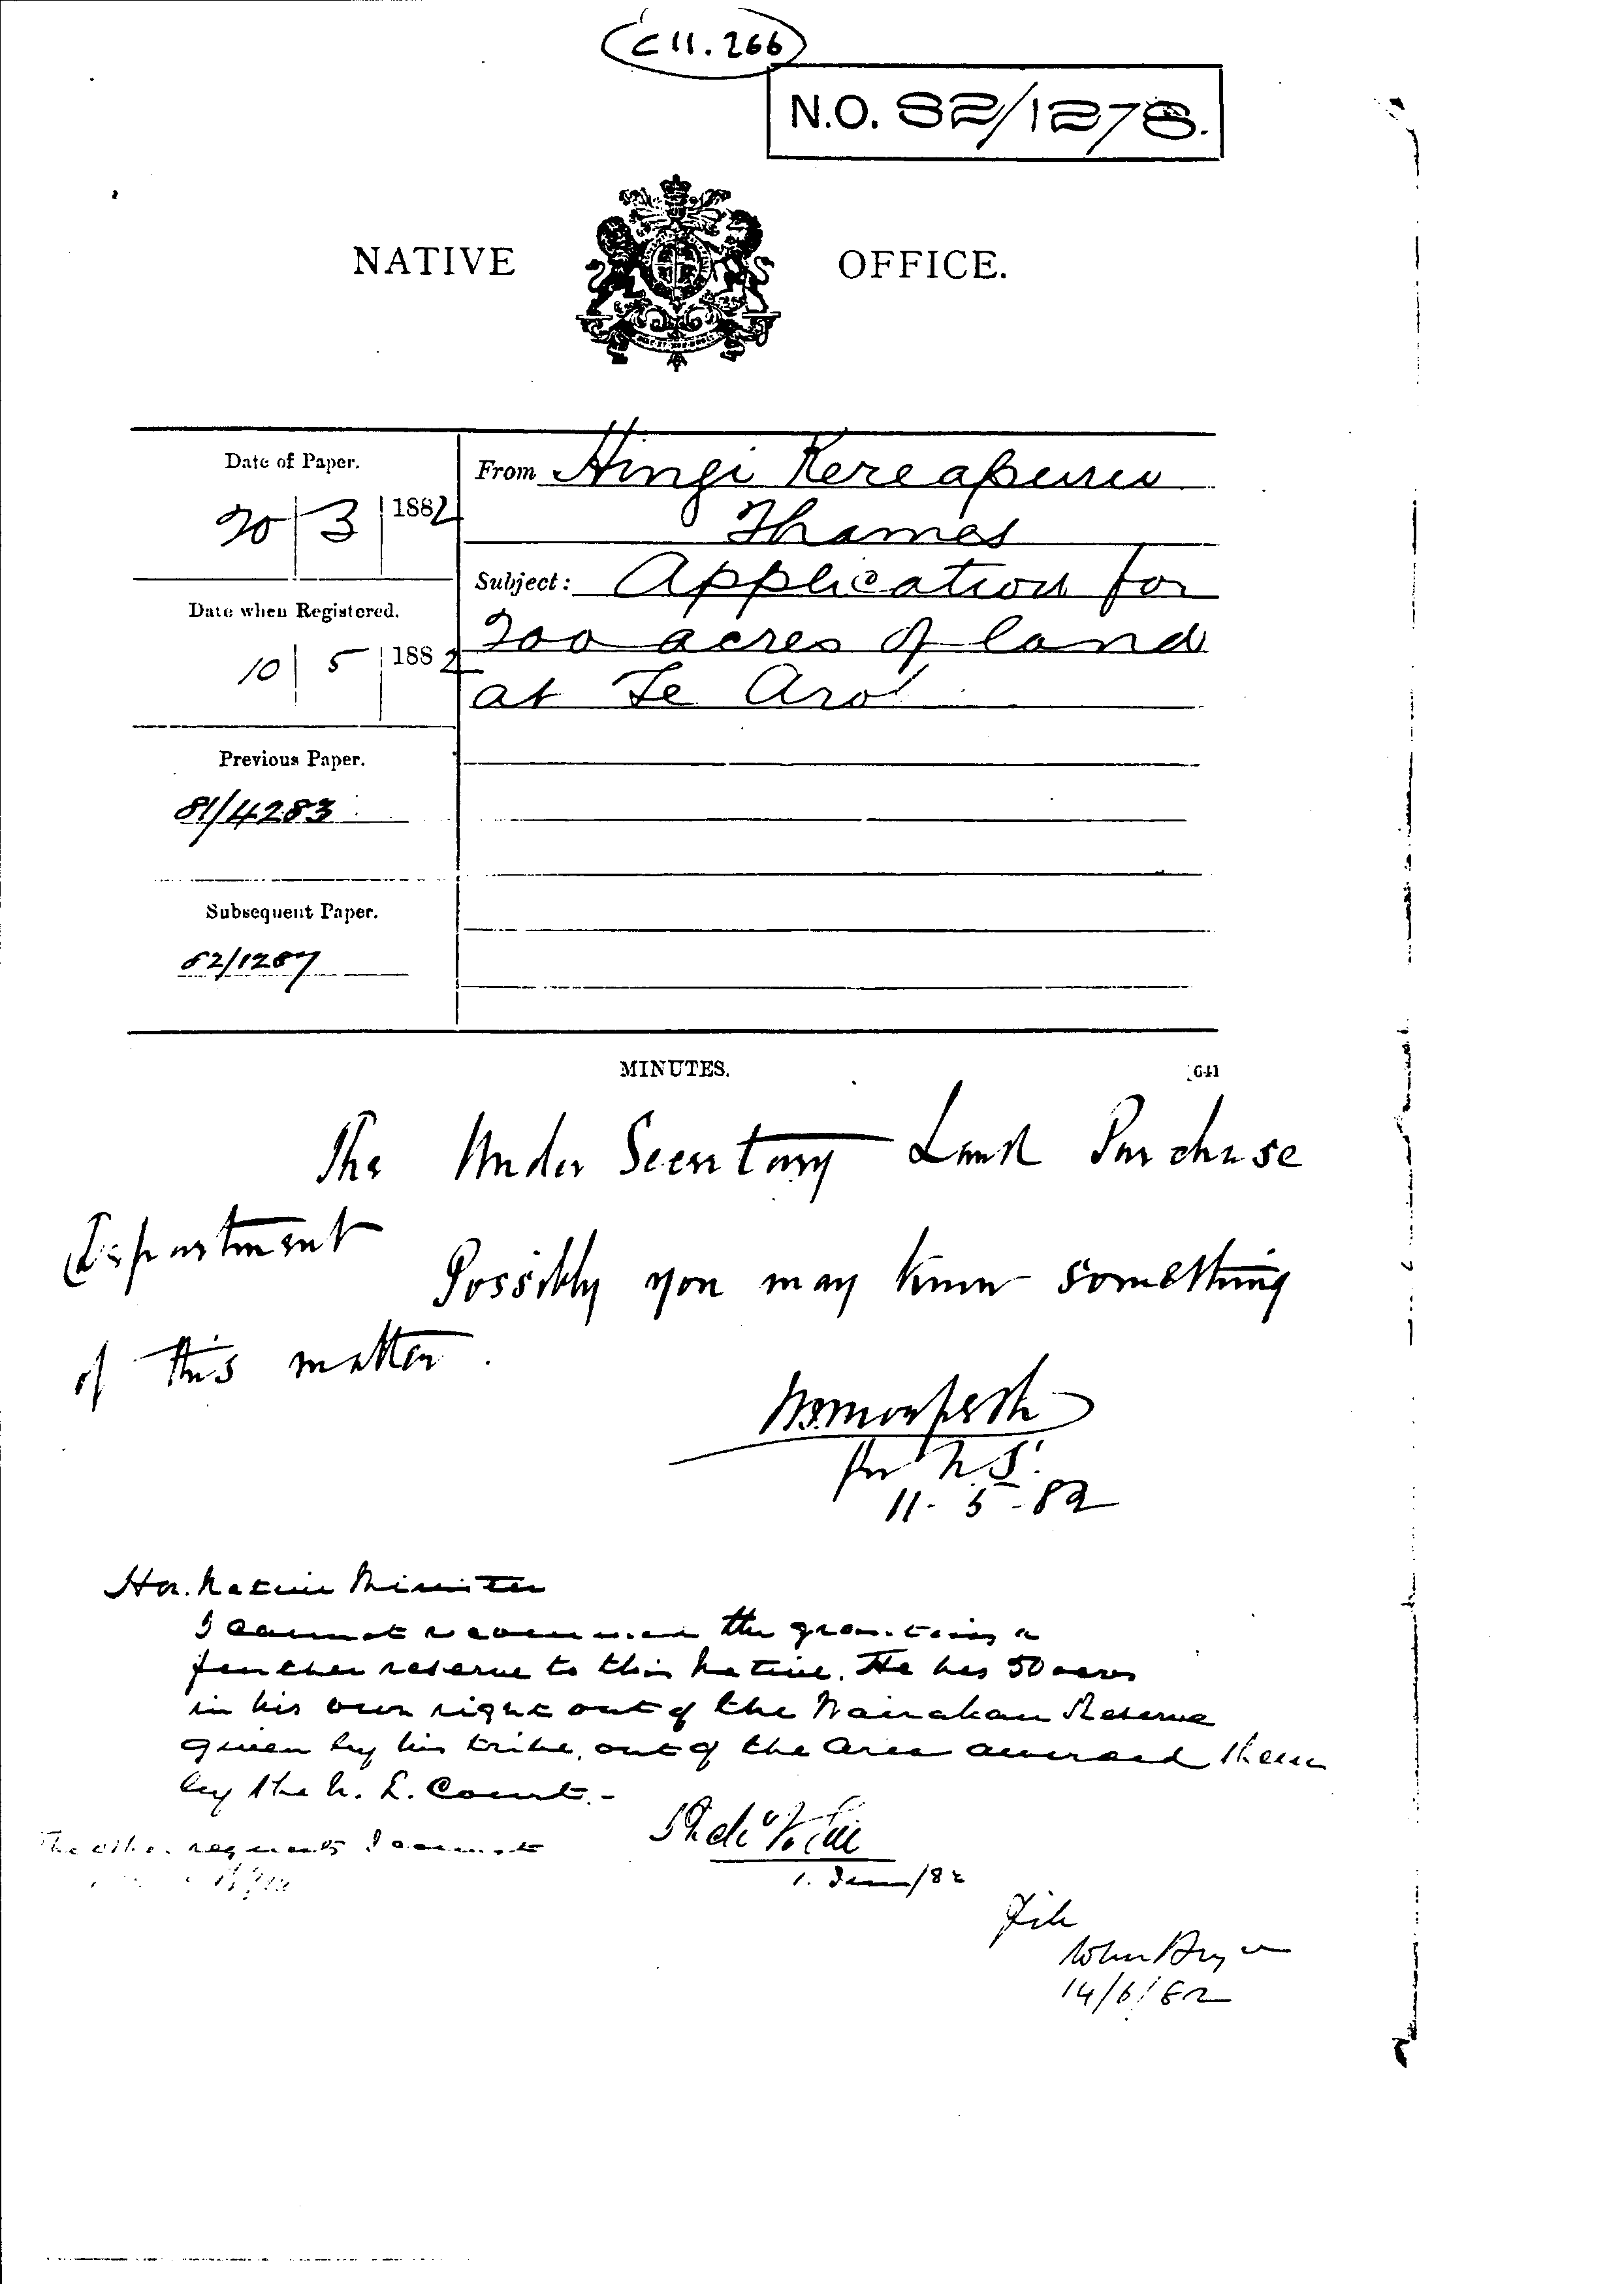 C 11. 266
N.O. 82/1278.
NATIVE OFFICE.
Date of Paper.
20 3 1882
From Hingi Kereapuru
Thames
Subject: Application for
200 acres of land
at Te Aro
Date when Registered.
10 5 1882
Previous Paper.
81/4283
Subsequent Paper.
82/1287
MINUTES.
[641
The Under Secretary Land Purchase
Department
Possibly you may know something
of this matter.
for N.S.
11-5-82
Hon. Native Minister
I cannot recommend the granting a
further reserve to this Native. He has 50 acres
in his own right out of the Wairakau Reserve
given by his tribe, out of the area awarded them
by the N. L. Court.-
1. June/82
The other requests I cannot
File
John Bryce
14/6/82